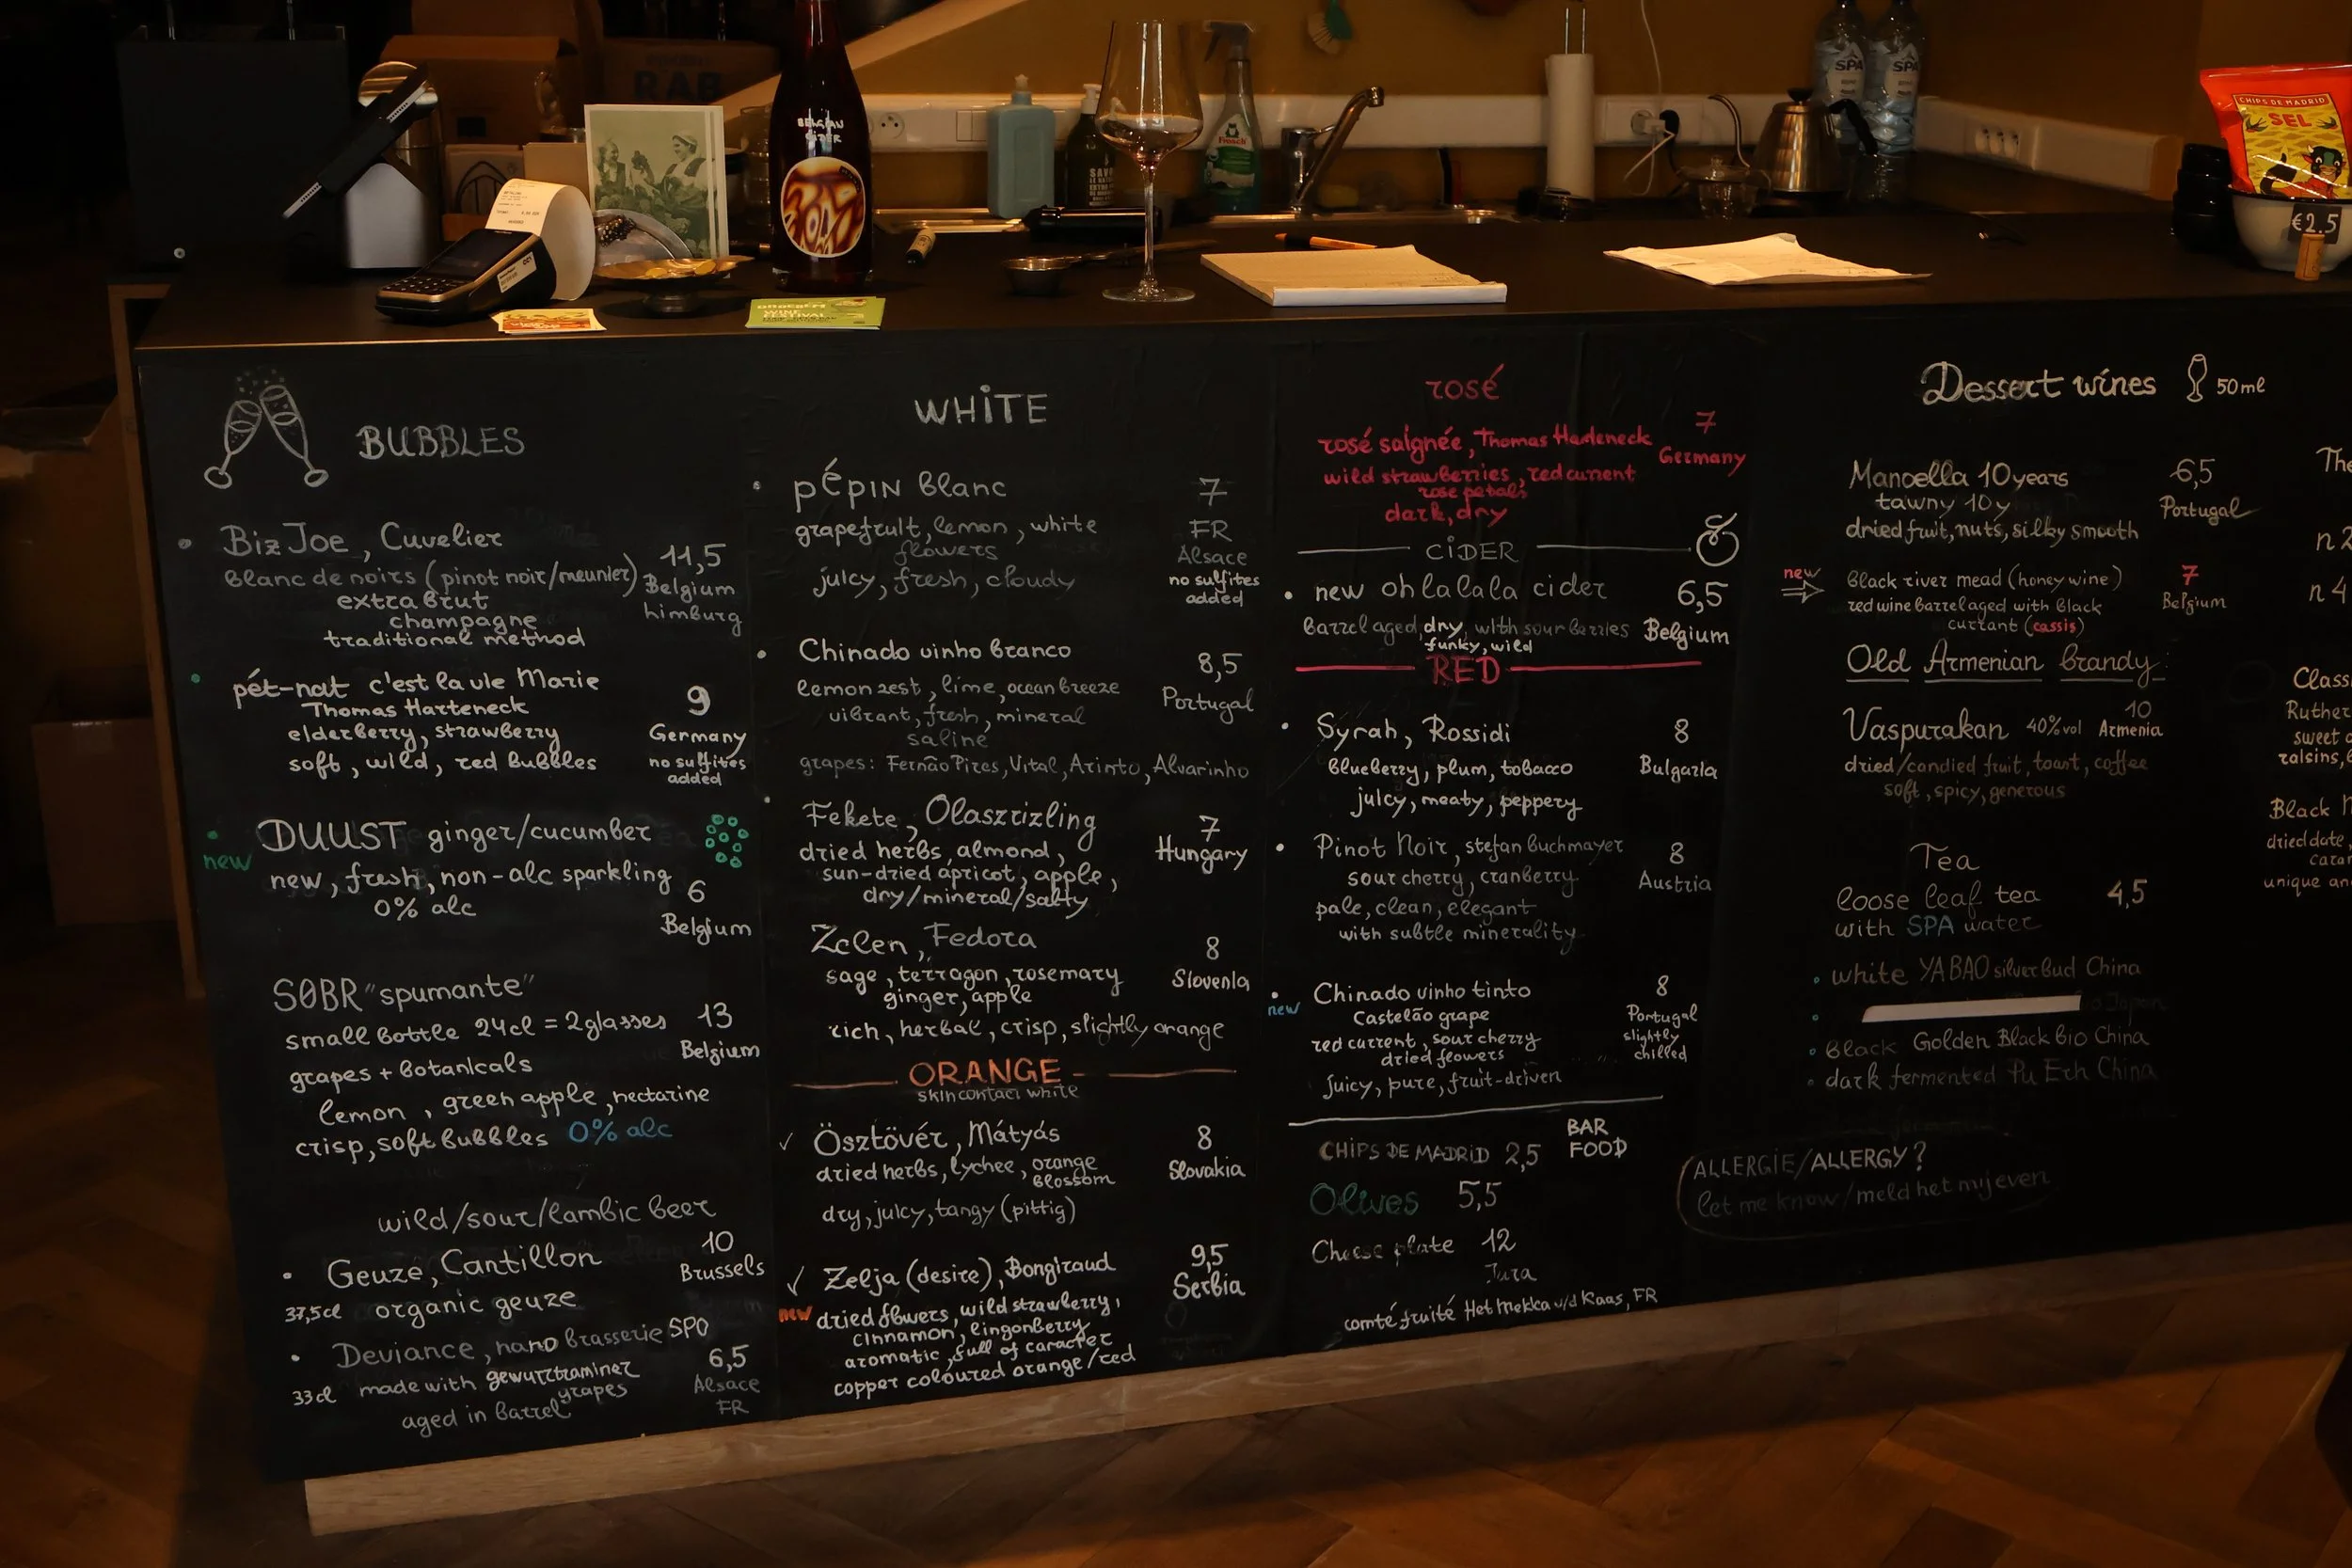 RAB
BELGIAN
CIDER
SAVON
Frosch
SPA
SPA
CHIPS DE MADRID
SEL
€2.5
WINE
FESTIVAL
BUBBLES
Biz Joe, Cuvelier
blanc de noirs (pinot noir/meunier)
extra brut
champagne
traditional method
11,5
Belgium
limburg
pét-nat c'est la vie Marie
Thomas Harteneck
elderberry, strawberry
soft, wild, red bubbles
9
Germany
no sulfites
added
new
DUUST ginger/cucumber
new, fresh, non-alc sparkling
0% alc
6
Belgium
SØBR "spumante"
small bottle 24cl = 2glasses
grapes + botanicals
lemon, green apple, nectarine
crisp, soft bubbles 0% alc
13
Belgium
wild/sour/lambic beer
Geuze, Cantillon
37,5cl organic geuze
10
Brussels
Deviance, nano brasserie SPO
33cl made with gewurztraminer
grapes
aged in barrel
6,5
Alsace
FR
WHITE
pépin blanc
grapefruit, lemon, white
flowers
juicy, fresh, cloudy
7
FR
Alsace
no sulfites
added
Chinado vinho branco
lemon zest, lime, ocean breeze
vibrant, fresh, mineral
saline
grapes: Fernão Pires, Vital, Arinto, Alvarinho
8,5
Portugal
Fekete, Olaszrizling
dried herbs, almond,
sun-dried apricot, apple,
dry/mineral/salty
7
Hungary
Zelen, Fedora
sage, terragon, rosemary
ginger, apple
rich, herbal, crisp, slightly orange
8
Slovenia
ORANGE
skincontact white
Ösztövér, Mátyás
dried herbs, lychee, orange
blossom
dry, juicy, tangy (pittig)
8
Slovakia
Zelja (desire), Bongiraud
new dried flowers, wild strawberry,
cinnamon, lingonberry
aromatic, full of caracter
copper coloured orange/red
9,5
Serbia
rosé
rosé saignée, Thomas Harteneck
wild strawberries, red current
rose petals
dark, dry
7
Germany
CIDER
new oh la la la cider
barrel aged, dry, with sour berries
funky, wild
6,5
Belgium
RED
Syrah, Rossidi
blueberry, plum, tobacco
juicy, meaty, peppery
8
Bulgaria
Pinot Noir, stefan Buchmayer
sour cherry, cranberry
pale, clean, elegant
with subtle minerality
8
Austria
new
Chinado vinho tinto
Castelão grape
red current, sour cherry
dried flowers
juicy, pure, fruit-driven
8
Portugal
slightly
chilled
BAR
FOOD
CHIPS DE MADRID 2,5
Olives 5,5
Cheese plate 12
Jura
comté fruité Het Mekka v/d Kaas, FR
Dessert wines 50ml
Manoella 10years
tawny 10y
dried fruit, nuts, silky smooth
6,5
Portugal
new
black river mead (honey wine)
red wine barrel aged with black
currant (cassis)
7
Belgium
Old Armenian brandy:
Vaspurakan 40%vol
dried/candied fruit, toast, coffee
soft, spicy, generous
10
Armenia
Tea
loose leaf tea 4,5
with SPA water
white YA BAO silver bud China
Japan
black Golden Black bio China
dark fermented Pu Erh China
ALLERGIE/ALLERGY?
let me know/meld het mij even
The
n 2
n 4
Class
Ruther
sweet
raisins,
Black
dried date,
unique an